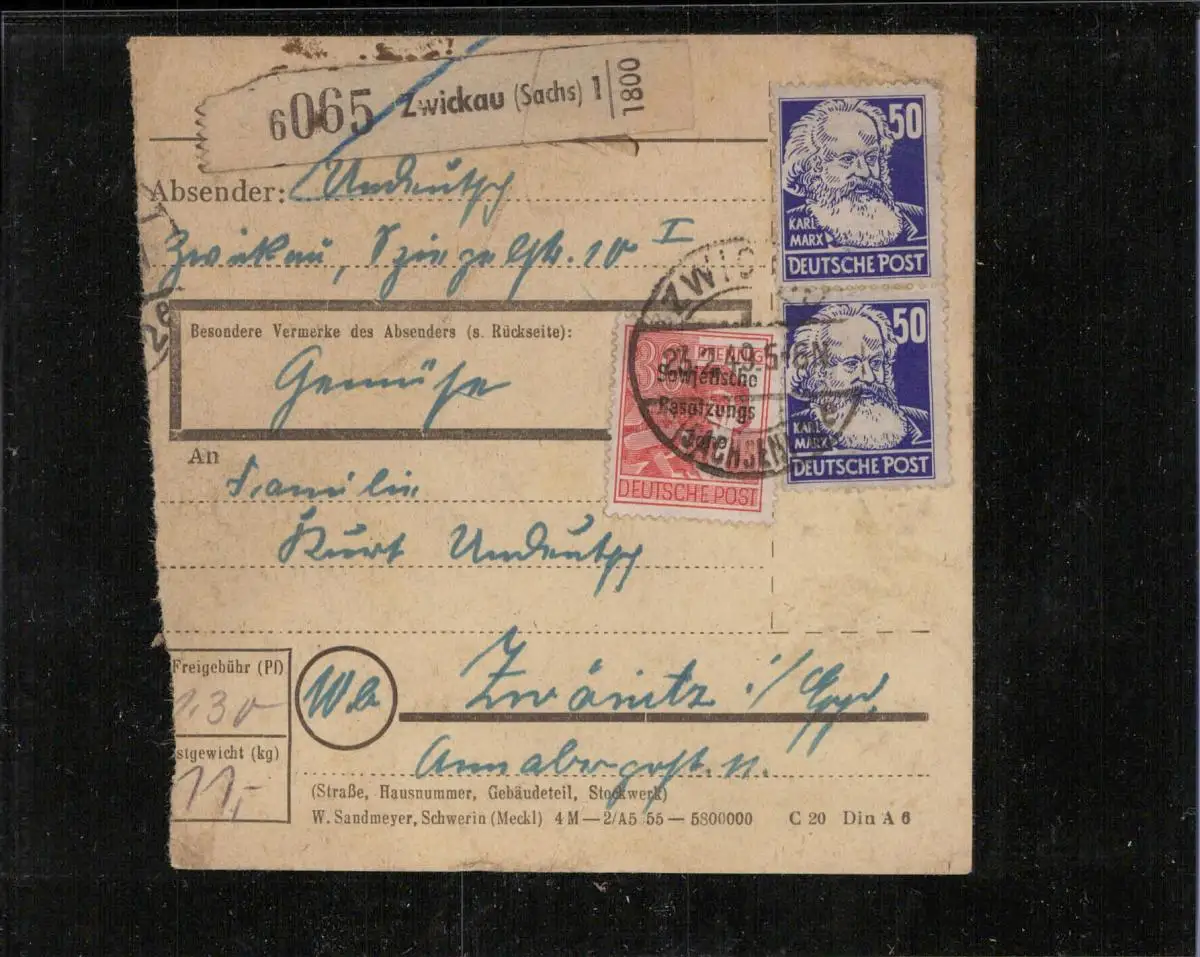 6065 Zwickau (Sachs) 1 1800
Absender: Undeutsch
Zwickau, Spiegelstr. 10 I
Besondere Vermerke des Absenders (s. Rückseite):
Gemüse
50
KARL
MARX
DEUTSCHE POST
50
KARL
MARX
DEUTSCHE POST
PFENNIG
Sowjetische
Besatzungs
Zone
DEUTSCHE POST
ZWIC
23.2.49.5-6N
(SACHSEN)
An
Familie
Kurt Undeutsch
Freigebühr (Pf)
1,30
stgewicht (kg)
11,-
Zwönitz i/Erzg.
(Straße, Hausnummer, Gebäudeteil, Stockwerk)
W. Sandmeyer, Schwerin (Meckl) 4 M — 2/A5 55 — 5800000 C 20 Din A 6